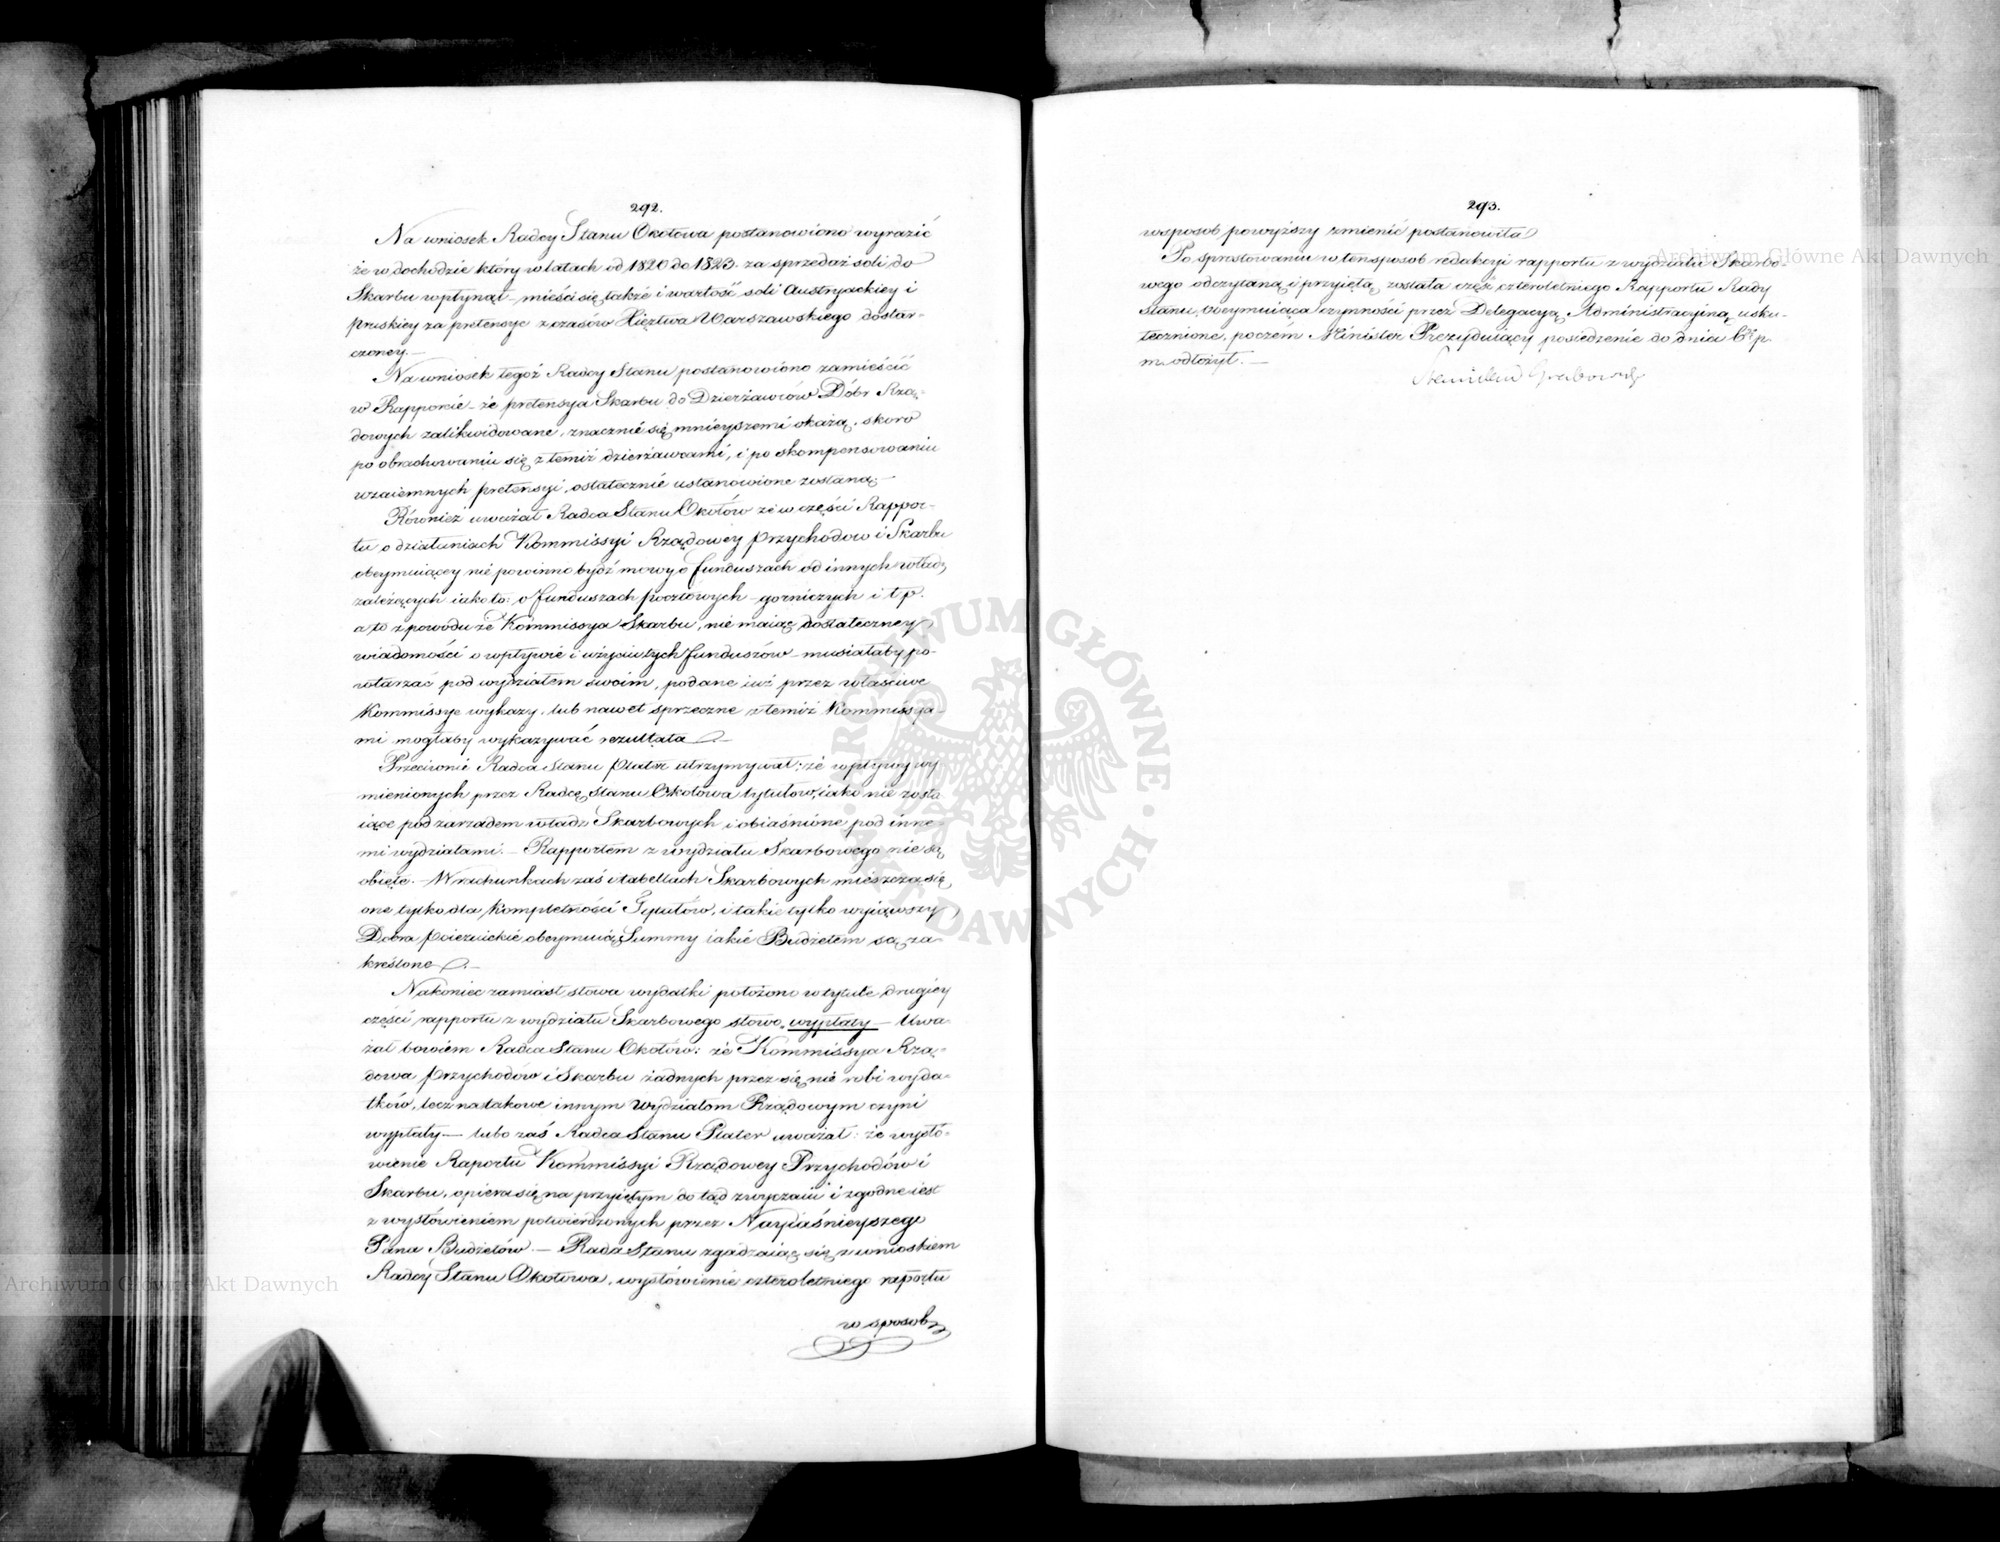 292.
Na wniosek Radcy Stanu Okołowa postanowiono wyrazić
że w dochodzie który w latach od 1820 do 1823. za sprzedaż soli do
Skarbu wpłynął – mieści się także i wartość soli Austryackiey i
pruskiey za pretensye z czasów Xięztwa Warszawskiego dostar-
czoney. –
Na wniosek tegoż Radcy Stanu postanowiono zamieścić
w Rapporcie – że pretensya Skarbu do Dzierżawców Dóbr Rzą-
dowych zalikwidowane, znacznie się mnieyszemi okażą, skoro
po obrachowaniu się z temiż dzierżawcami, i po skompensowaniu
wzaiemnych pretensyi, ostatecznie ustanowione zostaną. –
Również uważał Radca Stanu Okołów że w części Rappor-
tu o działaniach Kommissyi Rządowey Przychodow i Skarbu
obeymuiącey nie powinno bydź mowy o funduszach od innych władz
zależących iako to: o funduszach pocztowych – gorniczych i t p.
a to z powodu że Kommissya Skarbu, nie maiąc dostateczney
wiadomości o wpływie i użyciu tych funduszów – musiałaby po-
wtarzać pod wydziałem swoim, podane iuż przez właściwe
Kommissye wykazy, lub nawet sprzeczne z temiż Kommissya-
mi mogłaby wykazywać rezultata. –
Przeciwnie Radca Stanu Plater utrzymywał: że wpływy wy-
mienionych przez Radcę Stanu Okołowa tytułów, iako nie zosta-
iące pod zarządem władz Skarbowych i obiaśnione pod inne-
mi wydziałami. – Rapportem z wydziału Skarbowego nie są
obięte. – W rachunkach zaś i tabellach Skarbowych mieszczą się
one tylko dla kompletności Tytułów, i takie tylko wyiąwszy
Dobra poiezuickie obeymuią Summy iakie Budżetem są za-
kreślone. –
Nakoniec zamiast słowa wydatki położono w tytule drugiey
części rapportu z wydziału Skarbowego słowo „wypłaty – Uwa-
żał bowiem Radca Stanu Okołów: że Kommissya Rzą-
dowa Przychodów i Skarbu żadnych przez się nie robi wyda-
tków, lecz na takowe innym Wydziałom Rządowym czyni
wypłaty – lubo zaś Radca Stanu Plater uważał: że wysło-
wienie Raportu Kommissyi Rządowey Przychodów i
Skarbu, opiera się na przyiętym do tąd zwyczaiu i zgodne iest
z wysłowieniem potwierdzonych przez Nayiaśnieyszego
Pana Budżetów. – Rada Stanu zgadzaiąc się z wnioskiem
Radcy Stanu Okołowa, wysłowienie czteroletniego raportu
w sposob
293.
w sposob powyższy zmienić postanowiła
Po sprostowaniu w ten sposob redakcyi rapportu z wydziału Skarbo-
wego odczytaną i przyiętą została część czteroletniego Rapportu Rady
Stanu, obeymuiąca czynności przez Delegacyą Administracyiną usku-
tecznione, poczém Minister Prezyduiący posiedzenie do dnia 6 p.
m. odłożył. –
Stanisław Grabowski
Archiwum Główne Akt Dawnych
Archiwum Główne Akt Dawnych
ARCHIWUM GŁÓWNE AKT DAWNYCH